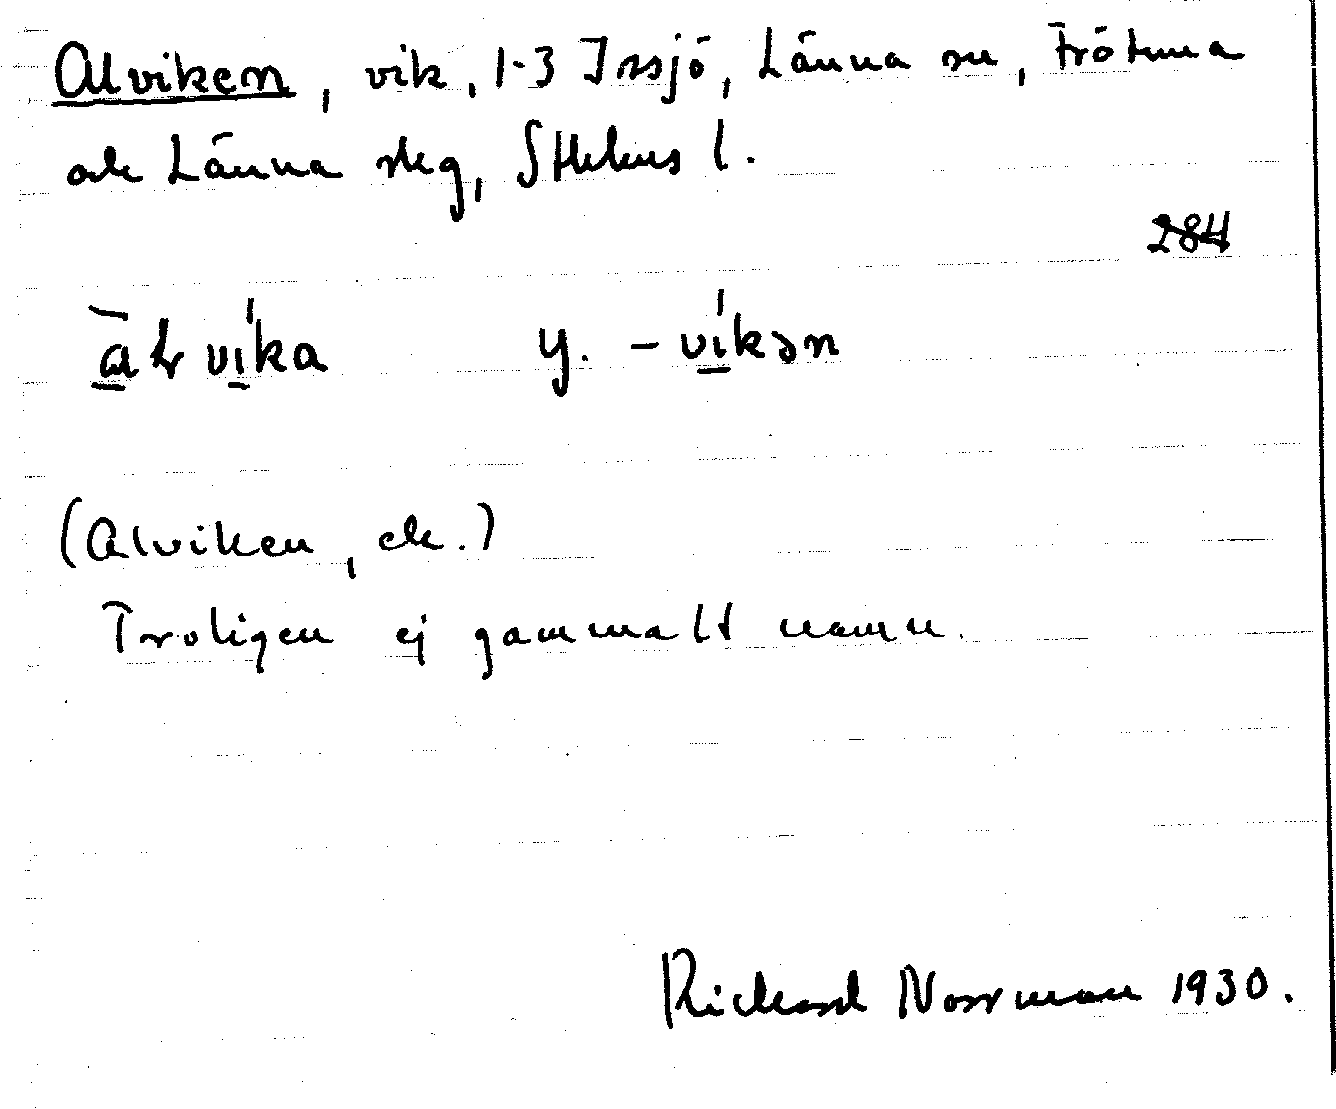 Alviken, vik, 1-3 Issjö, Länna sn, Frötuna
och Länna skg, Sthlms l.
284
àɫvíka y. -víkən
(Alviken, ek.)
Troligen ej gammalt namn.
Rickard Norrman 1930.